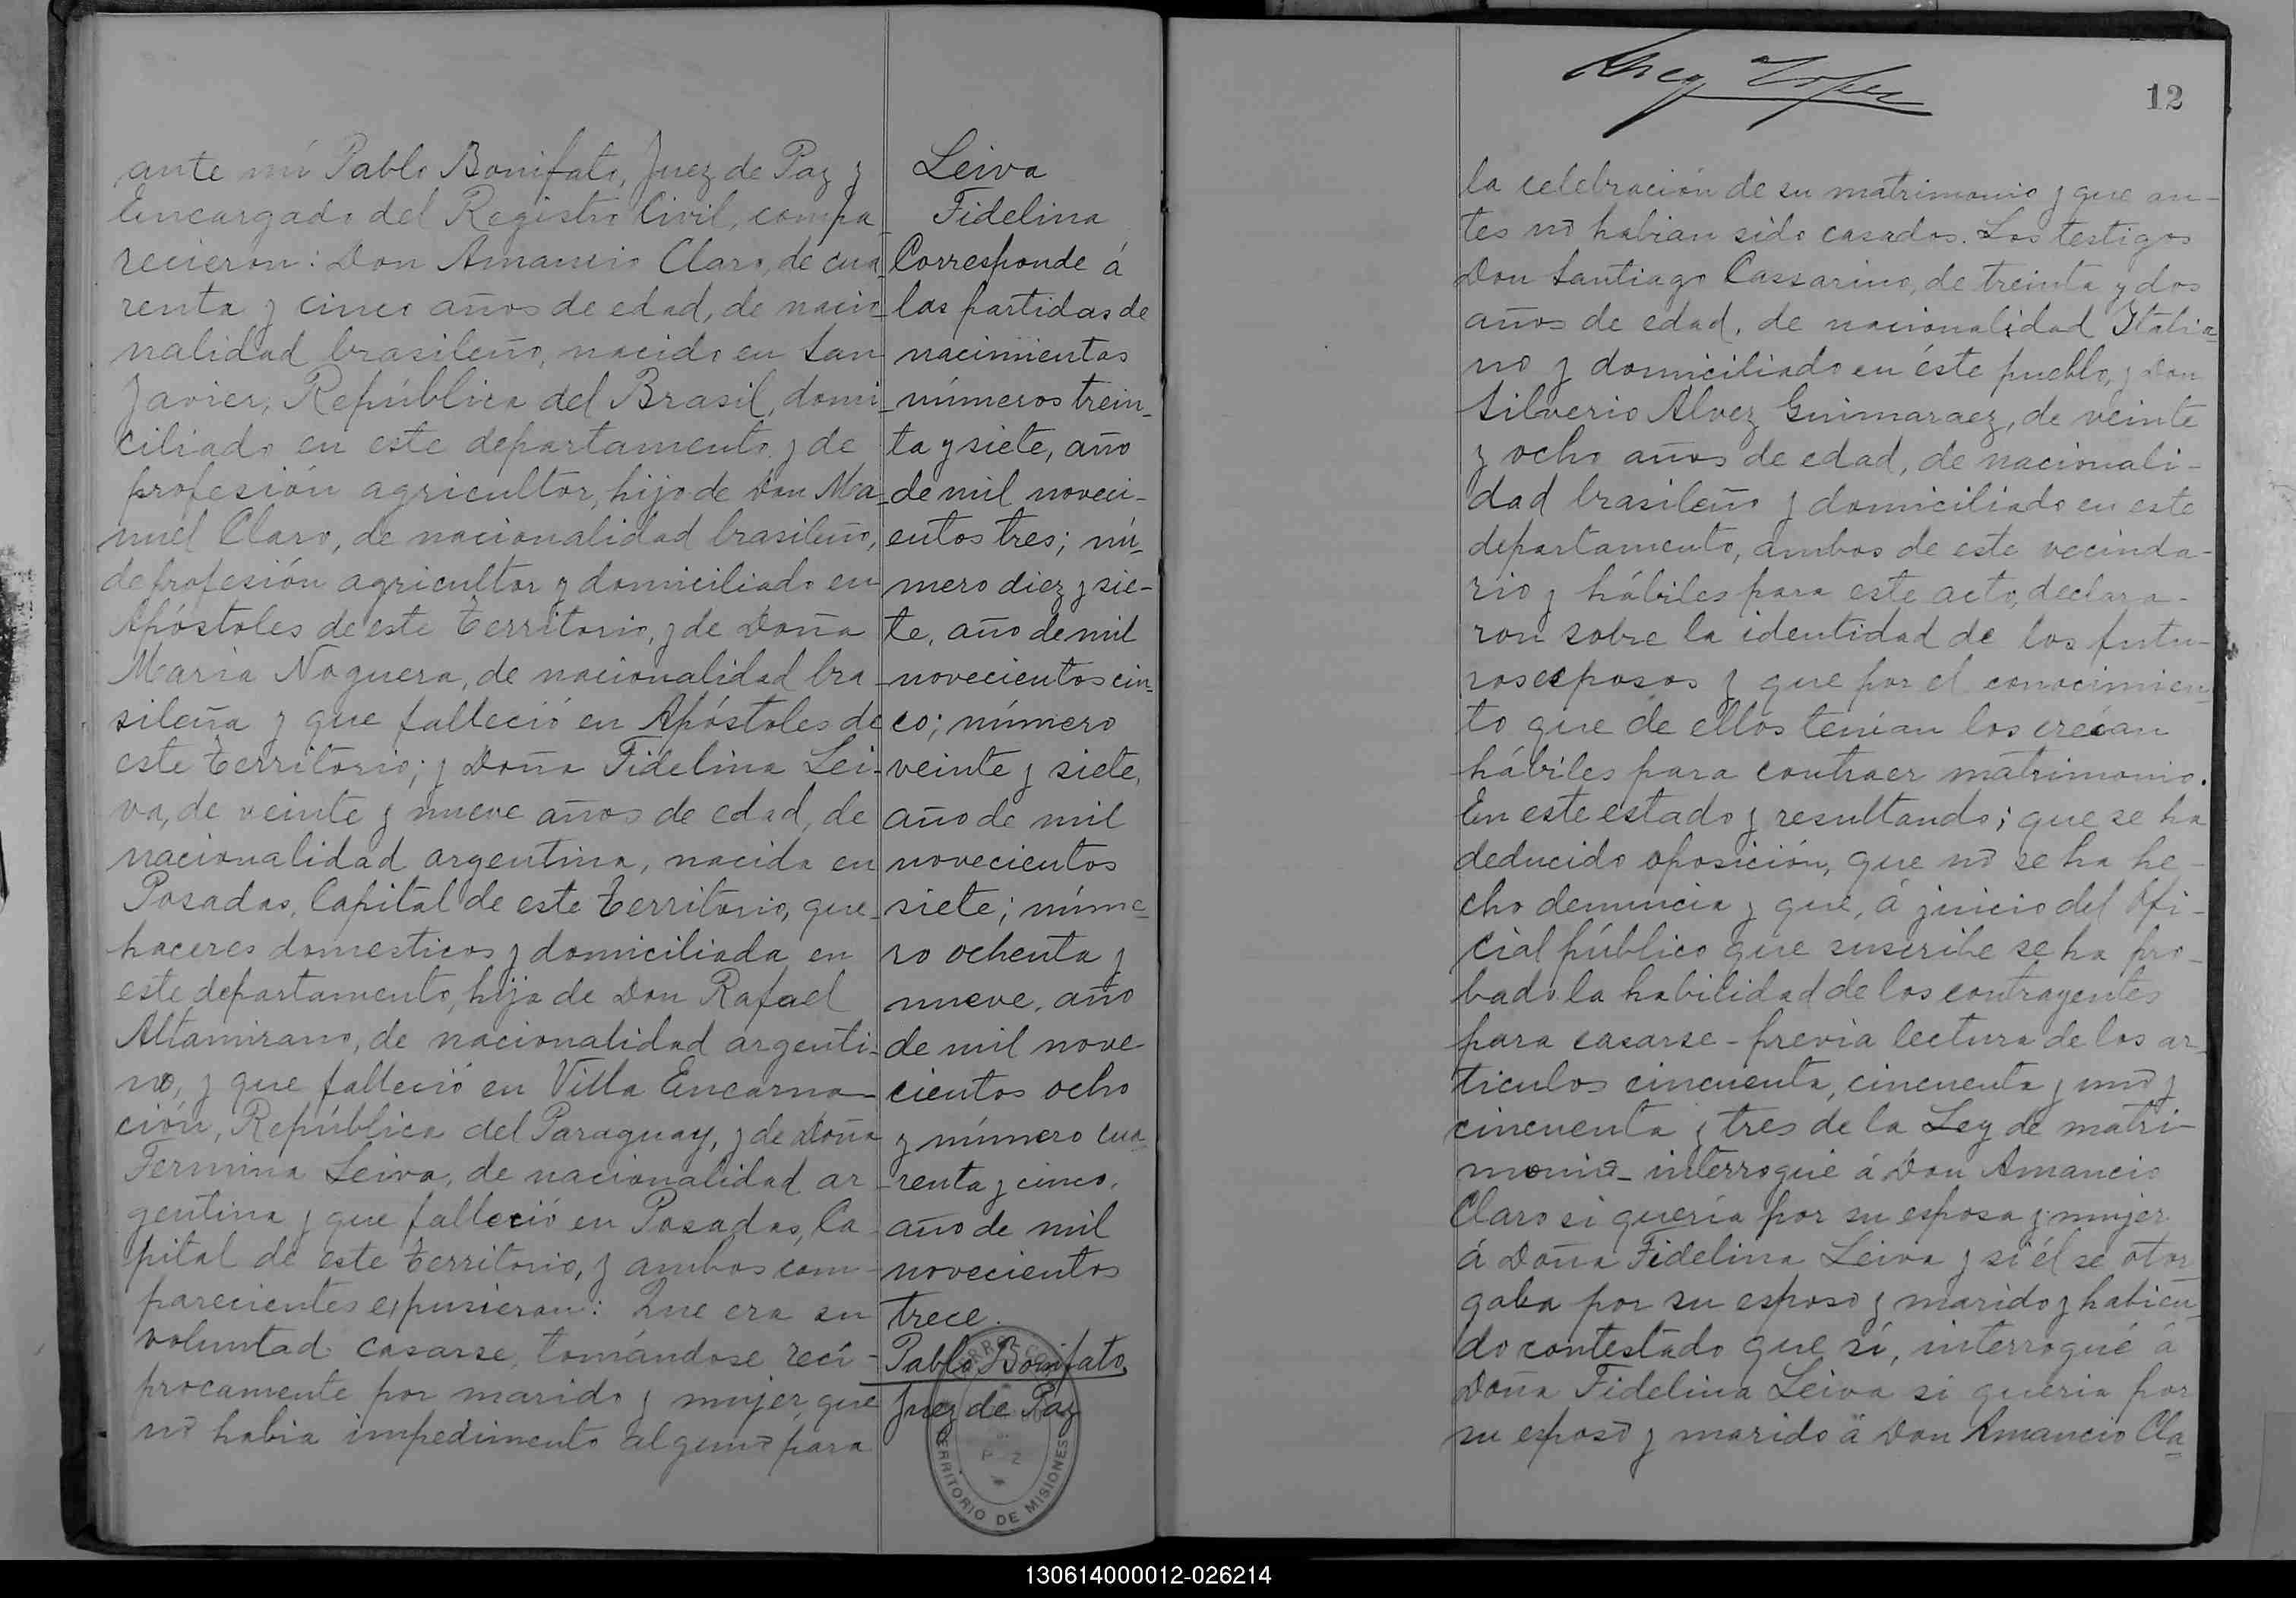 ante mí Pablo Bonifato, Juez de Paz y
Encargado del Registro Civil, compa
recieron: Don Amancio Claro, de cua
renta y cinco años de edad, de nacio
nalidad brasileño, nacido en San
Javier, República del Brasil, domi
ciliado en este departamento y de
profesión agricultor, hijo de Don Ma
nuel Claro, de nacionalidad brasileño,
de profesión agricultor y domiciliado en
Apóstoles de este Territorio, y de Doña
Maria Noguera, de nacionalidad bra
sileña y que falleció en Apóstoles de
este Territorio; y Doña Fidelina Lei-
va, de veinte y nueve años de edad, de
nacionalidad argentina, nacida en
Posadas, Capital de este Territorio, que
haceres domesticos y domiciliada en
este departamento, hija de Don Rafael
Altamirano, de nacionalidad argenti-
no, y que falleció en Villa Encarna
ción, República del Paraguay, y de Doña
Fermina Leiva, de nacionalidad ar
gentina y que falleció en Posadas, Ca
pital de este Territorio, y ambos com
parecientes expusieron: Que era su
voluntad casarse, tomándose recí-
procamente por marido y mujer, que
nó habia impedimento alguno para
Leiva
Fidelina
Corresponde á
las partidas de
nacimientos
números trein-
ta y siete, año
de mil noveci-
entos tres; nú-
mero diez y sie-
te, año de mil
novecientos cin-
co; número
veinte y siete,
año de mil
novecientos
siete; núme-
ro ochenta y
nueve, año
de mil nove
cientos ocho
y número cua
renta y cinco,
año de mil
novecientos
trece.
Pablo Bonifato
Juez de Paz
TERRITORIO DE MISIONES
12
la celebración de su matrimonio y que an-
tes nó habian sido casados. Los testigos
Don Santiago Cassarino, de treinta y dos
años de edad, de nacionalidad Italia
no y domiciliado en éste pueblo, y Don
Silverio Alvez Guimaraez, de veinte
y ocho años de edad, de nacionali-
dad brasileño y domiciliado en este
departamento, ambos de este vecinda-
rio y hábiles para este acto, declara-
ron sobre la identidad de los futu-
ros esposos y que por el conocimien
to que de ellos tenían los creían
hábiles para contraer matrimonio.
En este estado y resultando; que se ha
deducido oposición, que nó se ha he-
cho denuncia y que, á juicio del Ofi-
cial público que suscribe se ha pro-
bado la habilidad de los contrayentes
para casarse - previa lectura de los ar
tículos cincuenta, cincuenta y unó y
cincuenta y tres de la Ley de matri-
monio - interrogué á Don Amancio
Claro si quería por su esposa y mujer
á Doña Fidelina Leiva y si él se otor
gaba por su esposo y marido y habien
do contestado que sí, interrogué á
Doña Fidelina Leiva si queria por
su esposo y marido á Don Amancio Cla
130614000012-026214